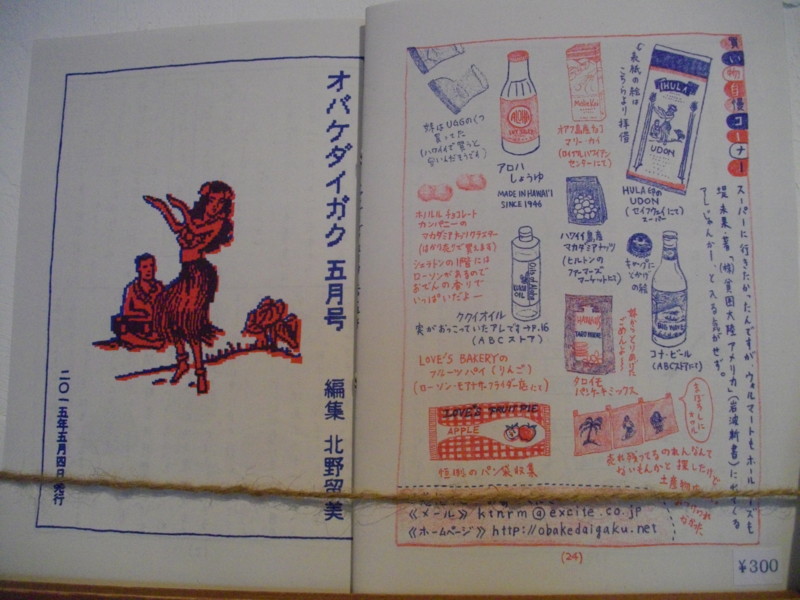 オバケダイガク 五月号
編集 北野留美
二〇一五年五月四日発行
買い物自慢コーナー
スーパーに行きたかったんですが、ウォルマートもホールフーズも
堤未果・著「(株)貧困大陸アメリカ」(岩波新書)に
表紙の絵は
こちらより拝借
HULA
UDON
HULA印の
UDON
(セイフウェイにて)
スーパー
オアフ島産チョコ
マリー・カイ
(ロイヤルハワイアン
センターにて)
ALOHA
アロハ
しょうゆ
MADE IN HAWAI'I
SINCE 1946
妹はUGGのくつ
買ってた
(ハワイイで買うと
安いんだそうデイ)
ホノルルチョコレート
カンパニーの
マカダミアナッツクラスター
(はかり売りで買えます)
シェラトンの1階には
ローソンがあるので
おでんの香りで
いっぱいだよー
ハワイイ島産
マカダミアナッツ
(ヒルトンの
ファーマーズ
マーケットにて)
キャップに
とかげの絵
コナ・ビール
(ABCストアにて)
ククイオイル
実がおっこっていたアレです→P.16
(ABCストア)
タロイモ
パンケーキミックス
LOVE'S BAKERYの
フルーツパイ(りんご)
LOVE'S FRUIT PIE
APPLE
恒例のパン袋収集
売れ残ってるのれんなんて
ないもんかと探したけど
土産物
《メール》 ktnrm@excite.co.jp
《ホームページ》 http://obakedaigaku.net
(24)
¥300